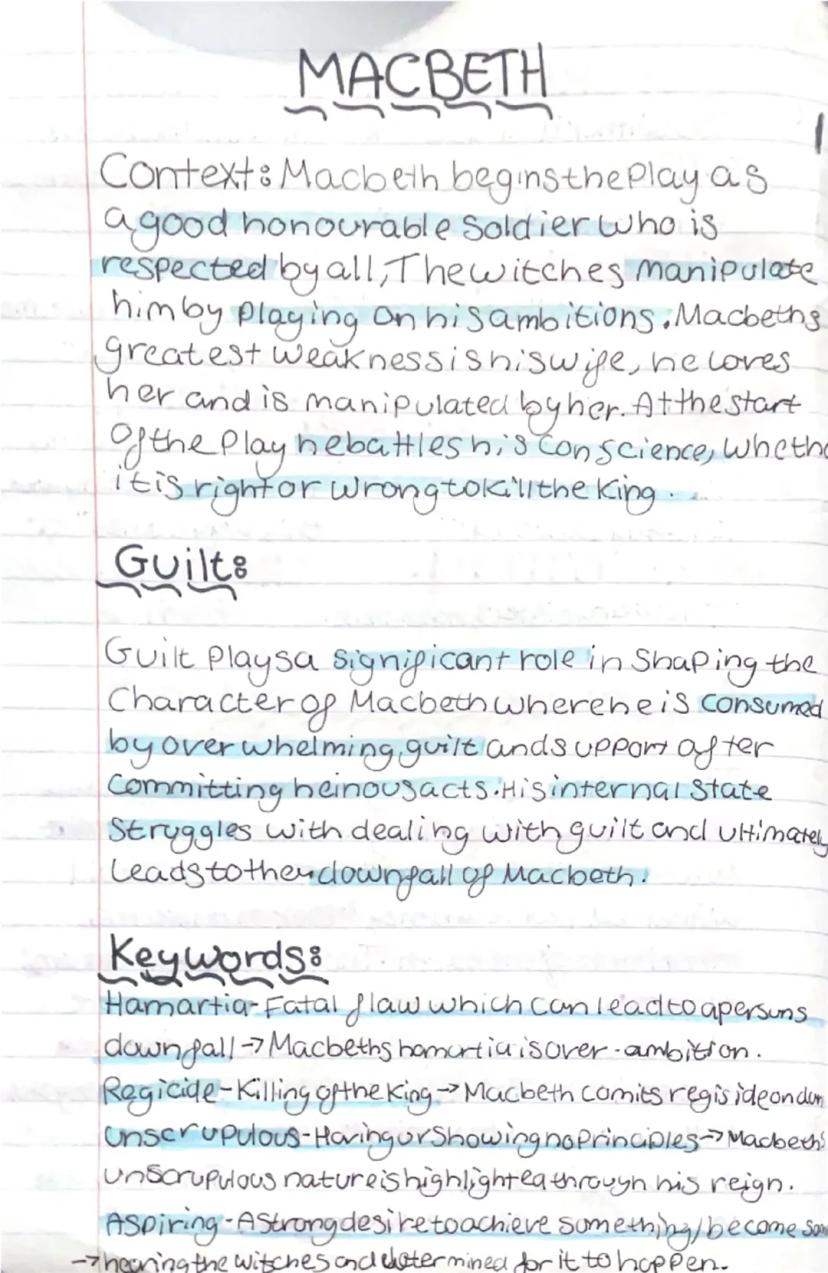 MACBETH
Context: Macbeth begins the Play as
a good honourable Soldier who is
respected by all, The witches manipulate
him by Playing on his ambitions. Macbeths
greatest weakness is his wife, he loves
her and is manipulated by her. At the start
of the Play he battles his conscience, wheth
it is right or wrong to kill the King.
Guilt:
Guilt Plays a significant role in Shaping the
Character of Macbeth where he is consumed
by over whelming guilt and support after
Committing heinous acts. His internal State
Struggles with dealing with guilt and ultimately
leads to the downfall of Macbeth.
Keywords:
Hamartia- Fatal flaw which can lead to a persons
downfall → Macbeths hamartia is over-ambition.
Regicide - Killing of the King → Macbeth comits regiside on dun
Unscrupulous - Having or Showing no Principles → Macbeths
unscrupulous nature is highlighted through his reign.
Aspiring - A strong desire to achieve something/become som
→ hearing the witches and determined for it to happen.